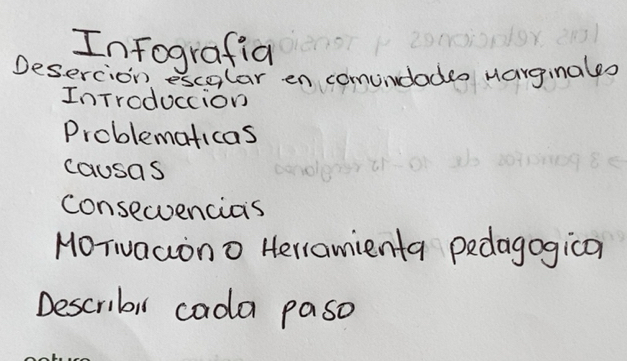 Infografia
Deserción escolar en comunidades Marginales
Introducción
Problematicas
causas
consecuencias
Motivación o Herramienta pedagogica
Describir cada paso